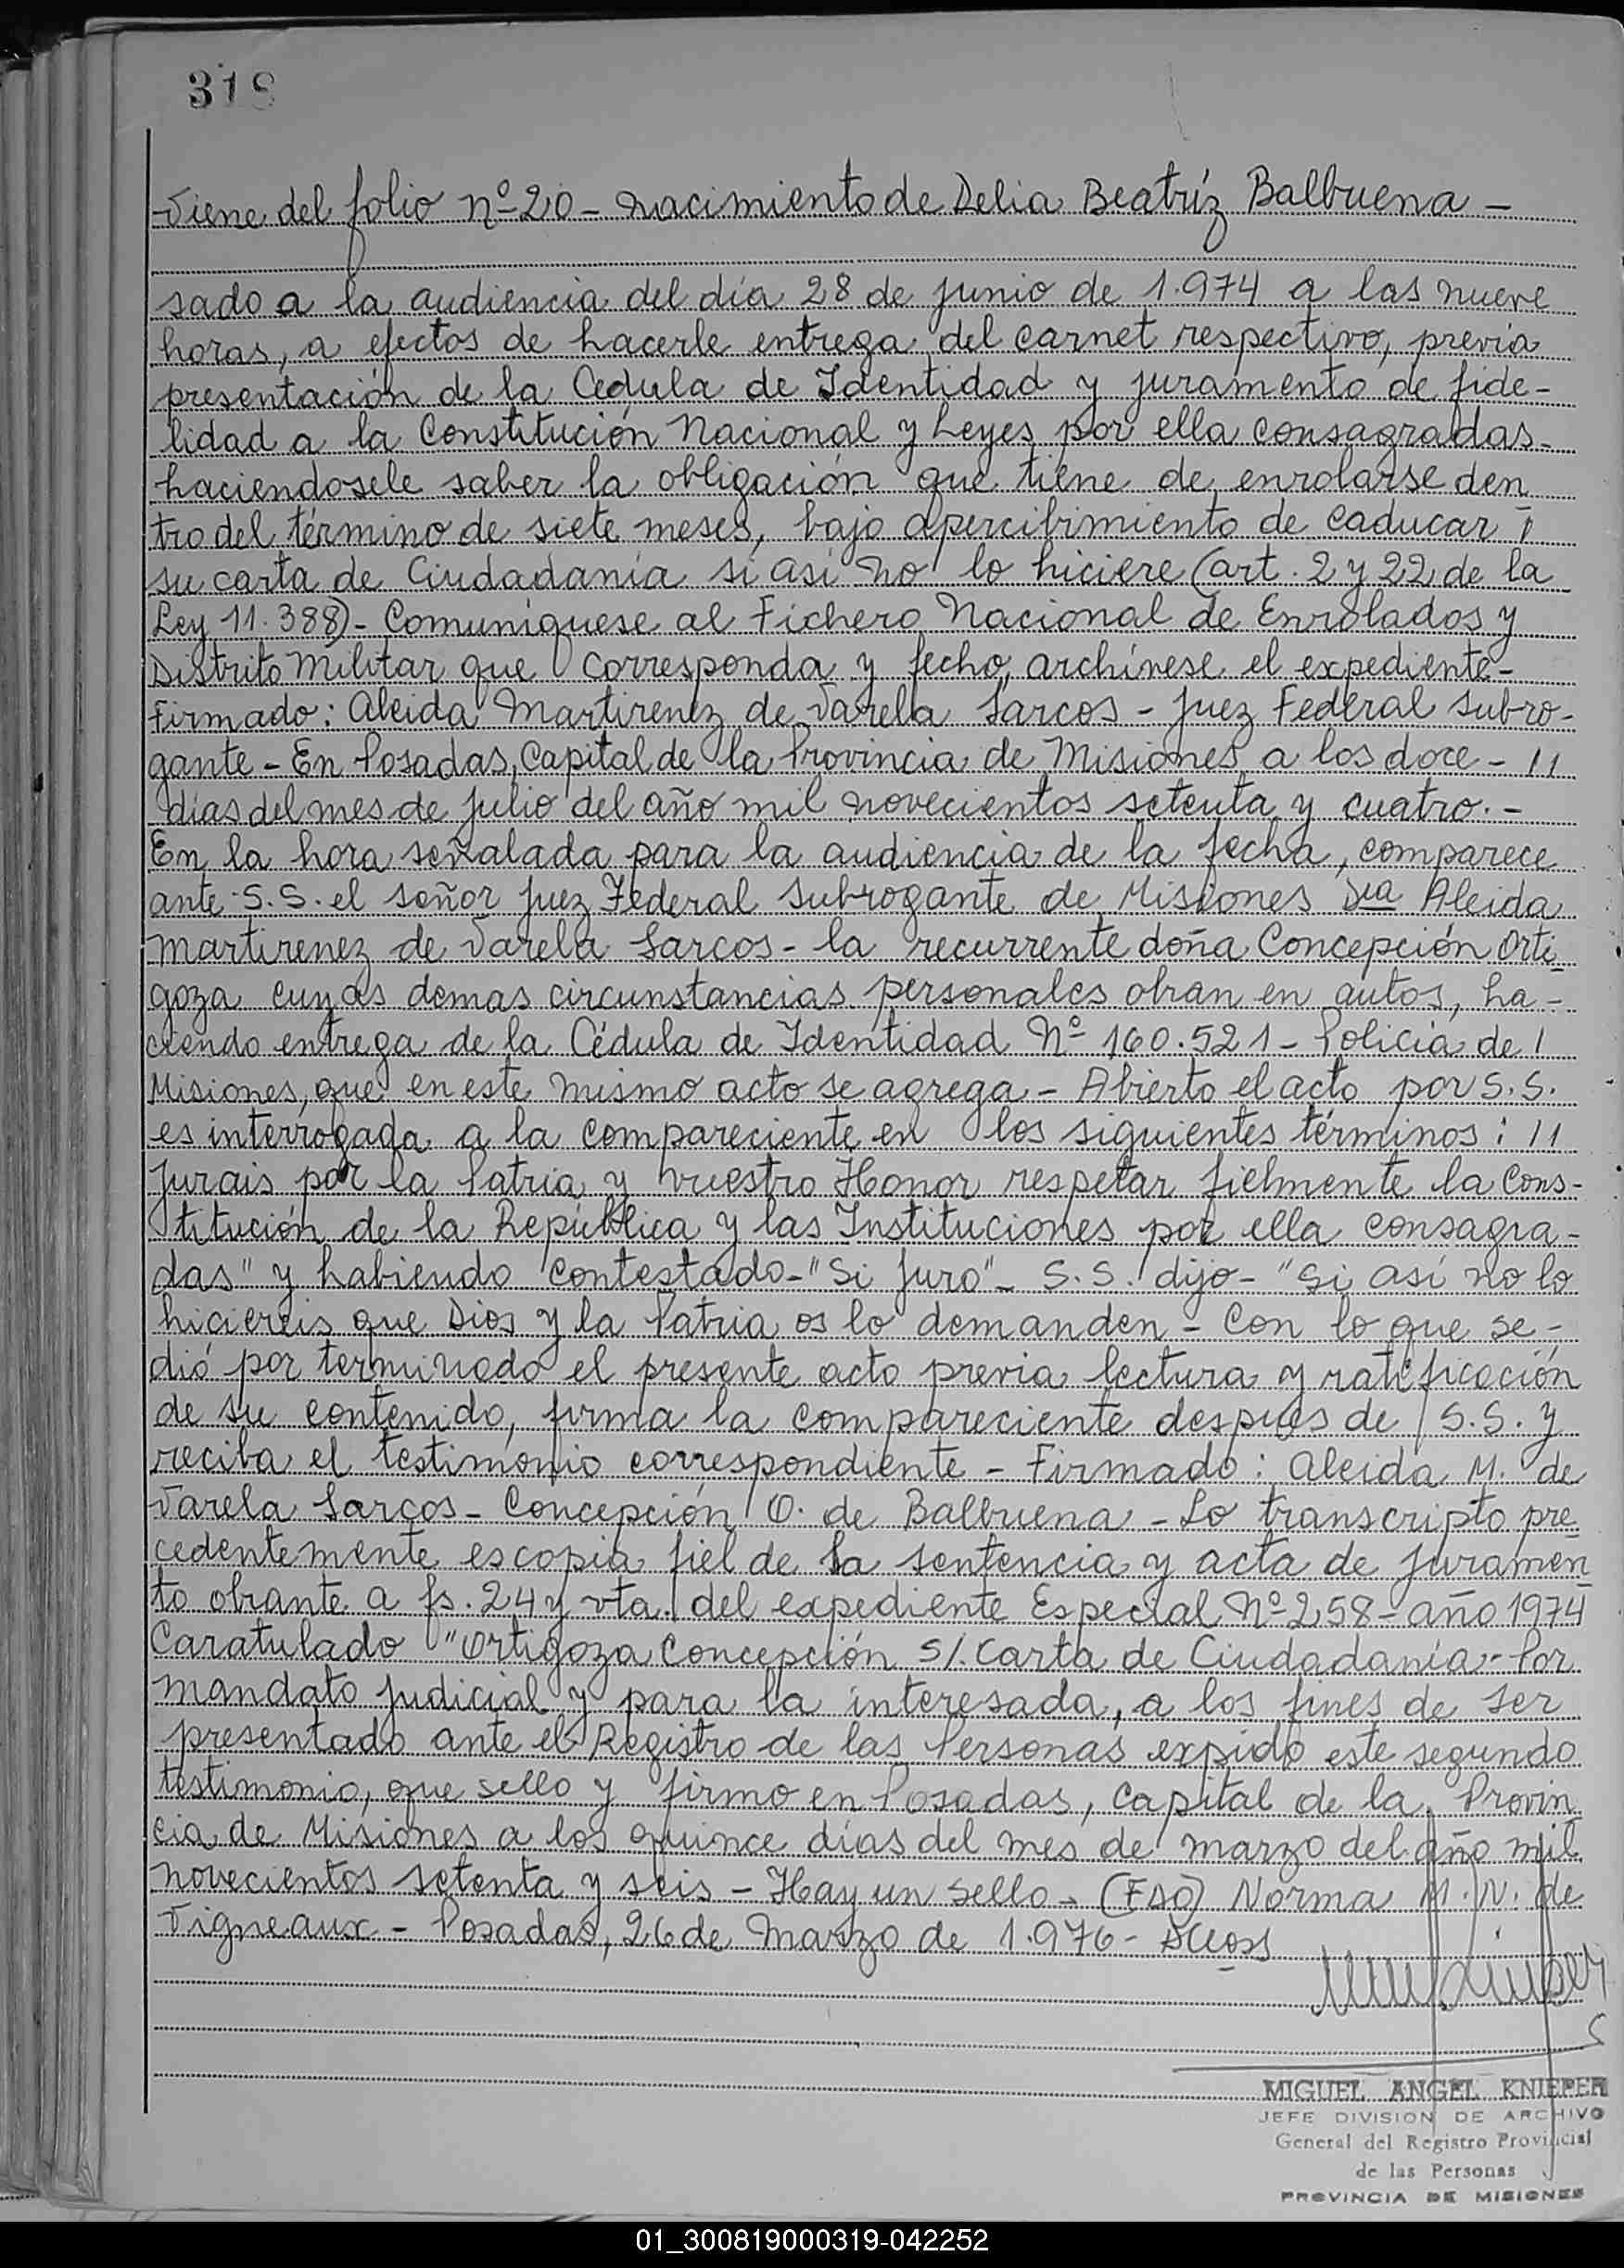 318
Viene del folio nº 20 - Nacimiento de Delia Beatríz Balbuena -
sado a la audiencia del día 28 de junio de 1.974 a las nueve
horas, a efectos de hacerle entrega del carnet respectivo, previa
presentación de la Cédula de Identidad y juramento de fide-
lidad a la Constitución Nacional y Leyes por ella consagradas-
haciendosele saber la obligación que tiene de enrolarse den
tro del término de siete meses, bajo apercibimiento de caducar /
su carta de Ciudadanía si así no lo hiciere (art. 2 y 22 de la
Ley 11.388)- Comuníquese al Fichero Nacional de Enrolados y
Distrito Militar que corresponda y fecho, archívese el expediente-
Firmado: Aleida Martirenez de Varela Sarcos - Juez Federal Subro-
gante - En Posadas, Capital de la Provincia de Misiones a los doce - //
días del mes de Julio del año mil novecientos setenta y cuatro. -
En la hora señalada para la audiencia de la fecha, comparece
ante S.S. el señor Juez Federal Subrogante de Misiones Dra Aleida
Martirenez de Varela Sarcos - la recurrente doña Concepción Orti_
goza cuyas demas circunstancias personales obran en autos, ha-
ciendo entrega de la Cédula de Identidad Nº 160.521 - Policía de /
Misiones, que en este mismo acto se agrega - Abierto el acto por S.S.
es interrogada a la compareciente en los siguientes términos: //
Jurais por la Patria y vuestro Honor respetar fielmente la Cons-
titución de la República y las Instituciones por ella consagra-
das" y habiendo contestado - "Si Juro" - S.S. dijo - "Si así no lo
hiciereis que Dios y la Patria os lo demanden - Con lo que se -
dió por terminado el presente acto previa lectura y ratificación
de su contenido, firma la compareciente despues de S.S. y
reciba el testimonio correspondiente - Firmado: Aleida M. de
Varela Sarcos - Concepción O. de Balbuena - Lo transcripto pre
cedentemente es copia fiel de la sentencia y acta de juramen
to obrante a fs. 24 y vta. del expediente Especial Nº 258 - año 1974
Caratulado "Ortigoza Concepción S/. Carta de Ciudadanía - Por
mandato judicial y para la interesada, a los fines de ser
presentado ante el Registro de las Personas expido este segundo
testimonio, que sello y firmo en Posadas, Capital de la Provin
cia de Misiones a los quince días del mes de marzo del año mil
novecientos setenta y seis - Hay un sello - (FDO) Norma M. N. de
Vigneaux - Posadas, 26 de Marzo de 1.976 -
MIGUEL ANGEL KNIEPER
JEFE DIVISION DE ARCHIVO
General del Registro Provincial
de las Personas
PROVINCIA DE MISIONES
01_300819000319-042252